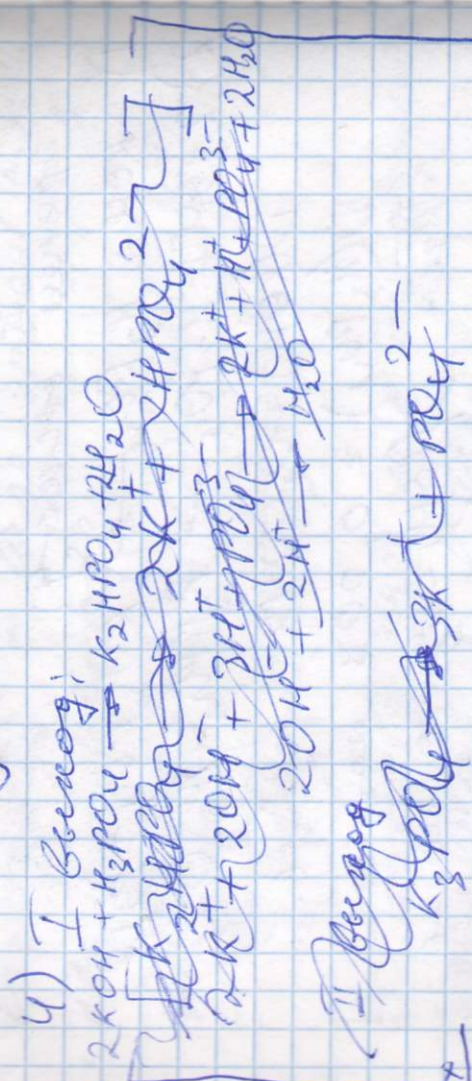 4) I выход:
2KOH + H₃PO₄ → K₂HPO₄ + 2H₂O
K₂HPO₄ → 2K⁺ + HPO₄²⁻
2K⁺ + 2OH⁻ + 3H⁺ + PO₄³⁻ → 2K⁺ + H⁺ + PO₄³⁻ + 2H₂O
2OH⁻ + 2H⁺ → H₂O
II выход
K₃PO₄ → 3K⁺ + PO₄²⁻